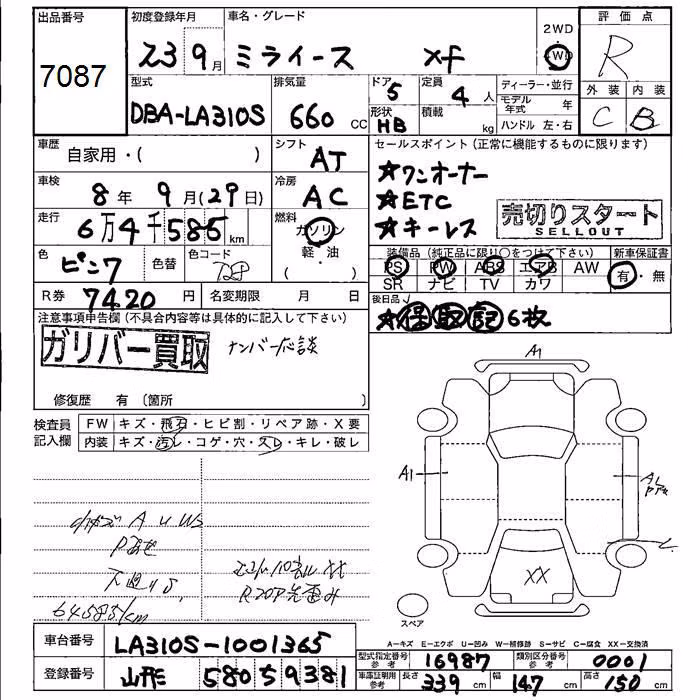 出品番号 初度登録年月 車名・グレード 評価点
7087 23 9月 ミライース Xf 2WD 4WD R
型式 排気量 ドア 5 定員 4人 ディーラー・並行 外装 内装
DBA-LA310S 660 CC 形状 HB 積載 kg モデル年式 年 C B
ハンドル 左・右
車歴 自家用・( ) シフト AT セールスポイント (正常に機能するものに限ります)
車検 8年 9月(29日) 冷房 AC ★ワンオーナー
★ETC 売切りスタート
走行 6万4千585km 燃料 ガソリン ★キーレス SELLOUT
軽・油
色 ピンク 色替 色コード ( ) 装備品 (純正品に限り○をつけて下さい) 新車保証書
PS PW ABS エアB AW 有・無
SR ナビ TV カワ
R券 7420円 名変期限 月 日 後日品
注意事項申告欄 (不具合内容等は具体的に記入して下さい) ★保取記6枚
ガリバー買取 ナンバー応談
A1
修復歴 有 (箇所 )
検査員 FW キズ・飛石・ヒビ割・リペア跡・X要
記入欄 内装 キズ・汚レ・コゲ・穴・スレ・キレ・破レ
A1 A1
A U W3
XX
64585km
スペア
A=キズ E=エクボ U=凹み W=補修跡 S=サビ C=腐食 XX=交換済
車台番号 LA310S-1001365
型式指定番号 参考 16987 類別区分番号 参考 0001
登録番号 山形 580 5 9381 車庫証明用 参考 長さ 339 cm 幅 147 cm 高さ 150 cm